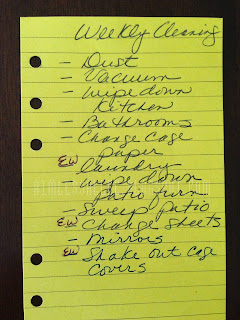 Weekly Cleaning
- Dust
- Vacuum
- wipe down
Kitchen
- Bathrooms
- Change cage
paper
EW laundry
- wipe down
patio furn
- Sweep patio
EW Change Sheets
- Mirrors
EW Shake out cage
covers